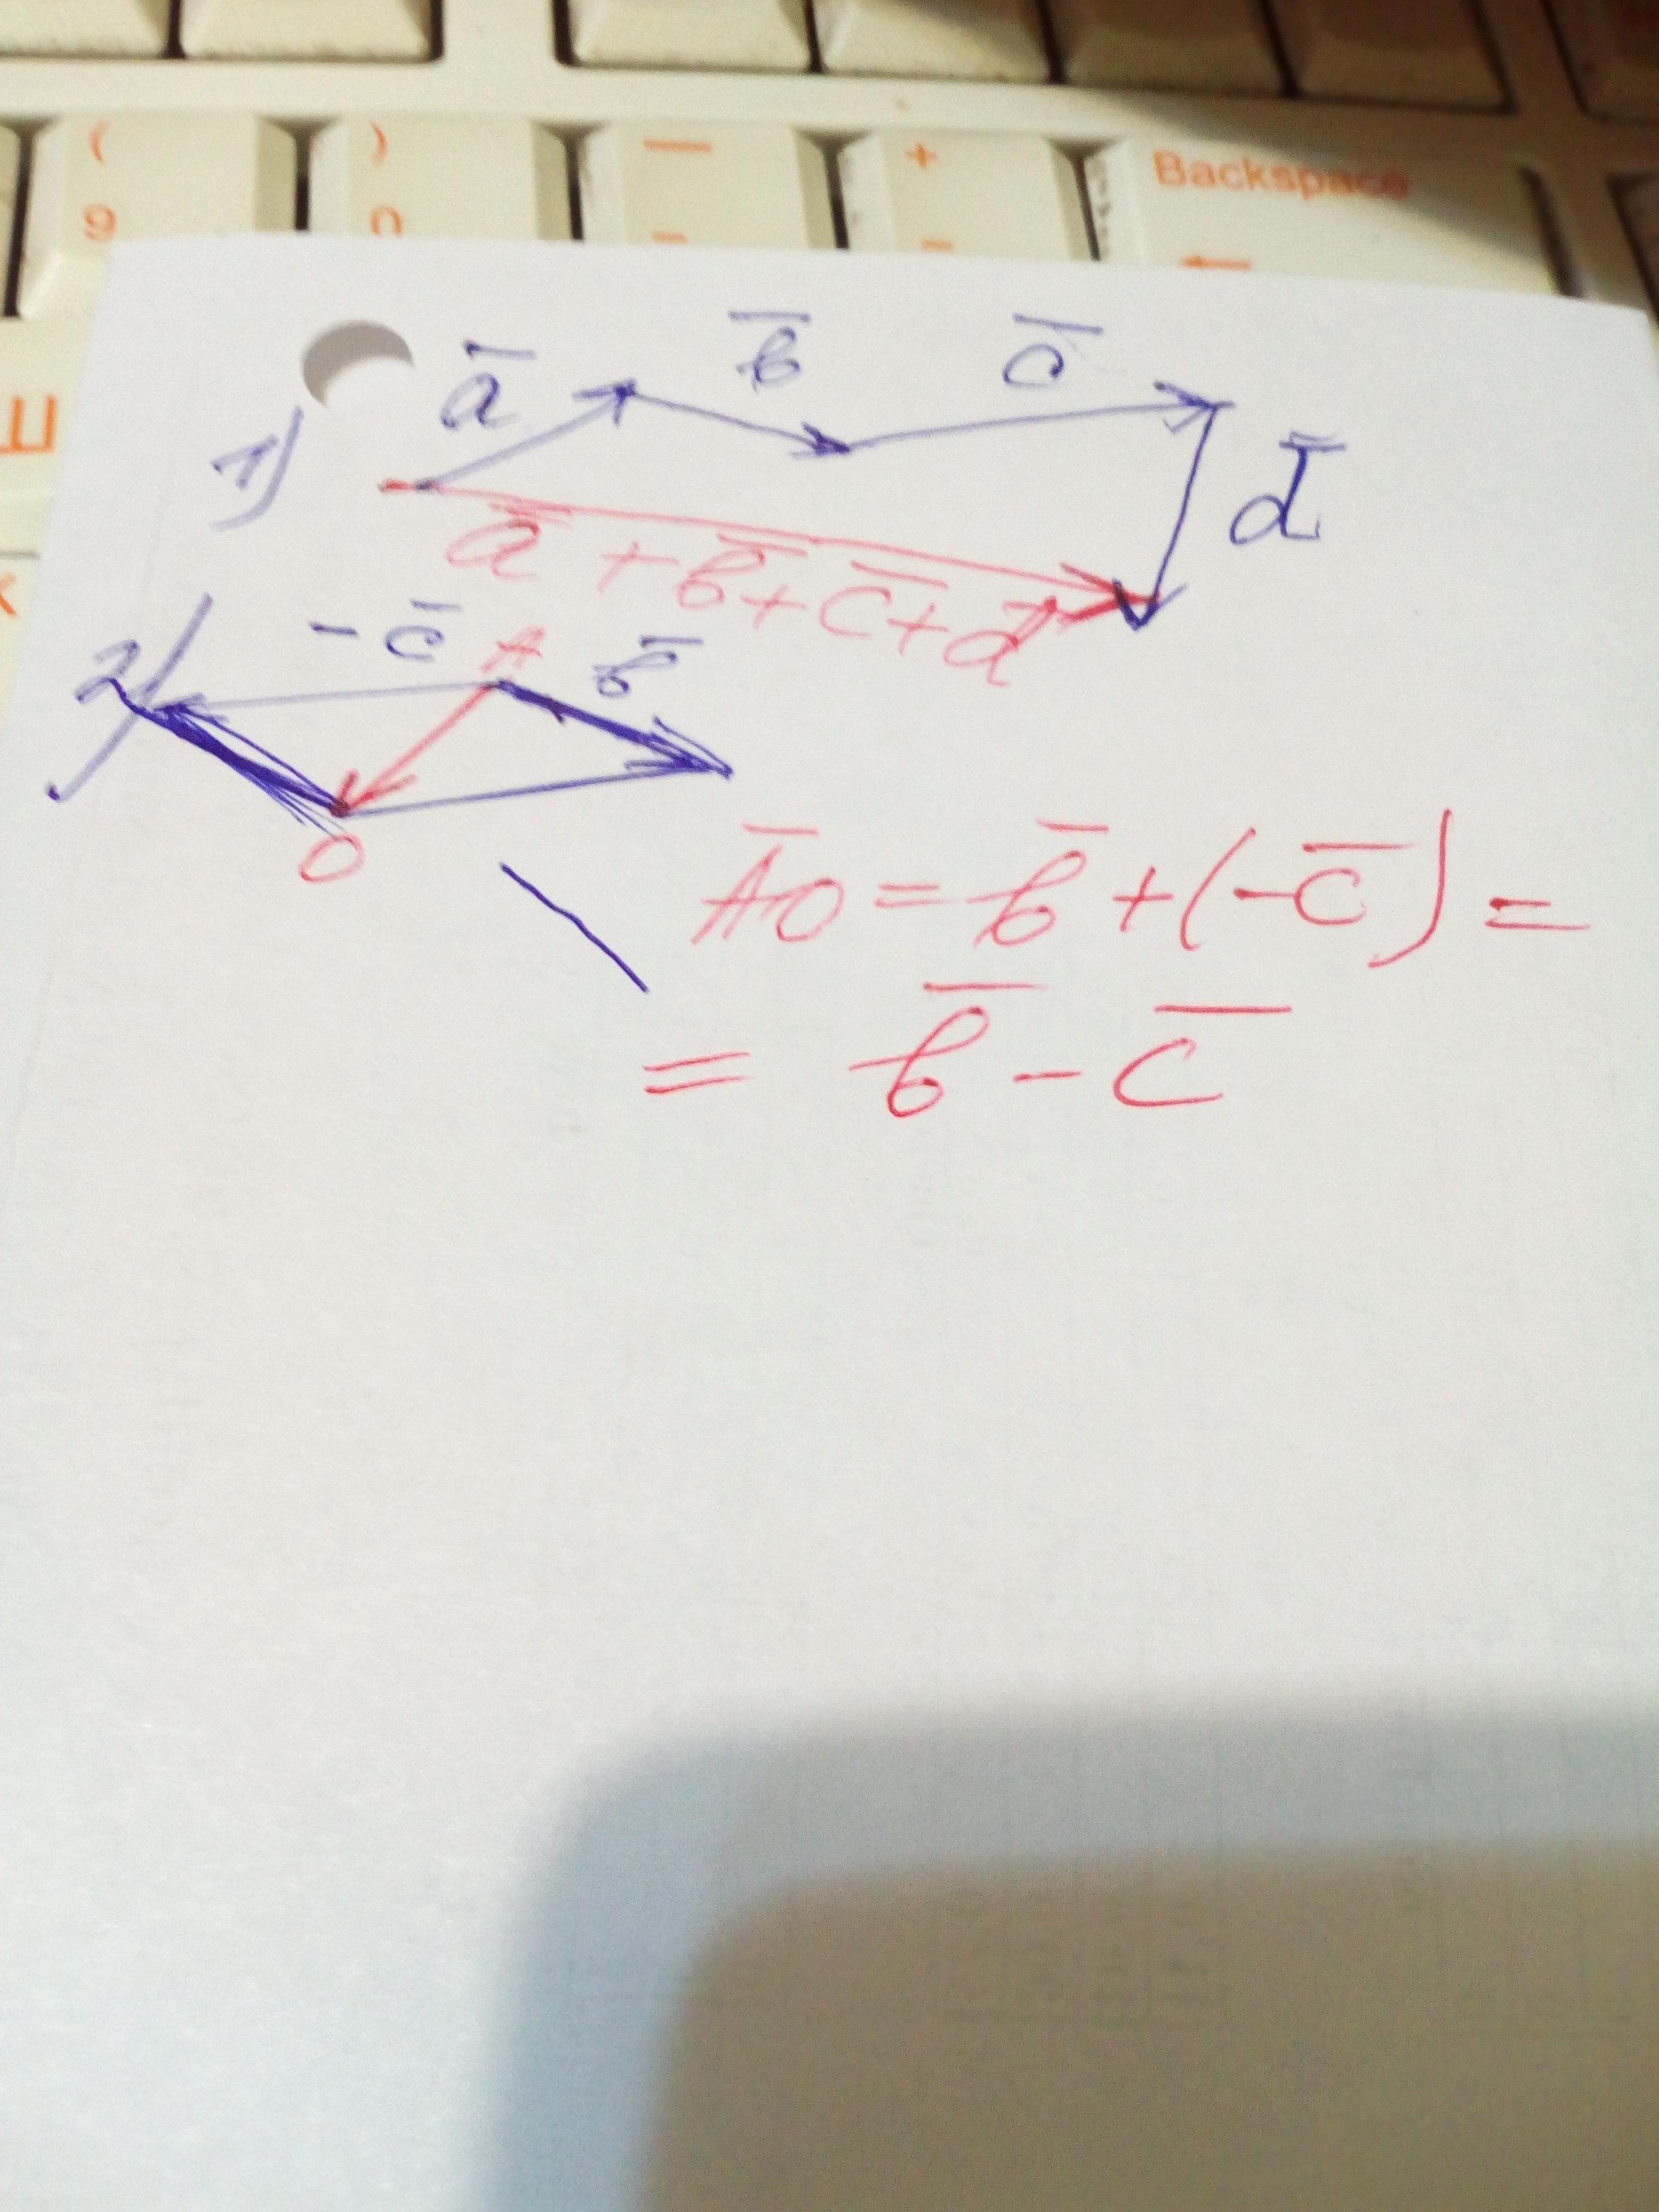 ( ) — + Backspace
9 0 - = ←
Ш
1) a̅ b̅ c̅ d̅
a̅ + b̅ + c̅ + d̅
2) -c̅ A b̅
O
A̅O̅ = b̅ + (-c̅) =
= b̅ - c̅